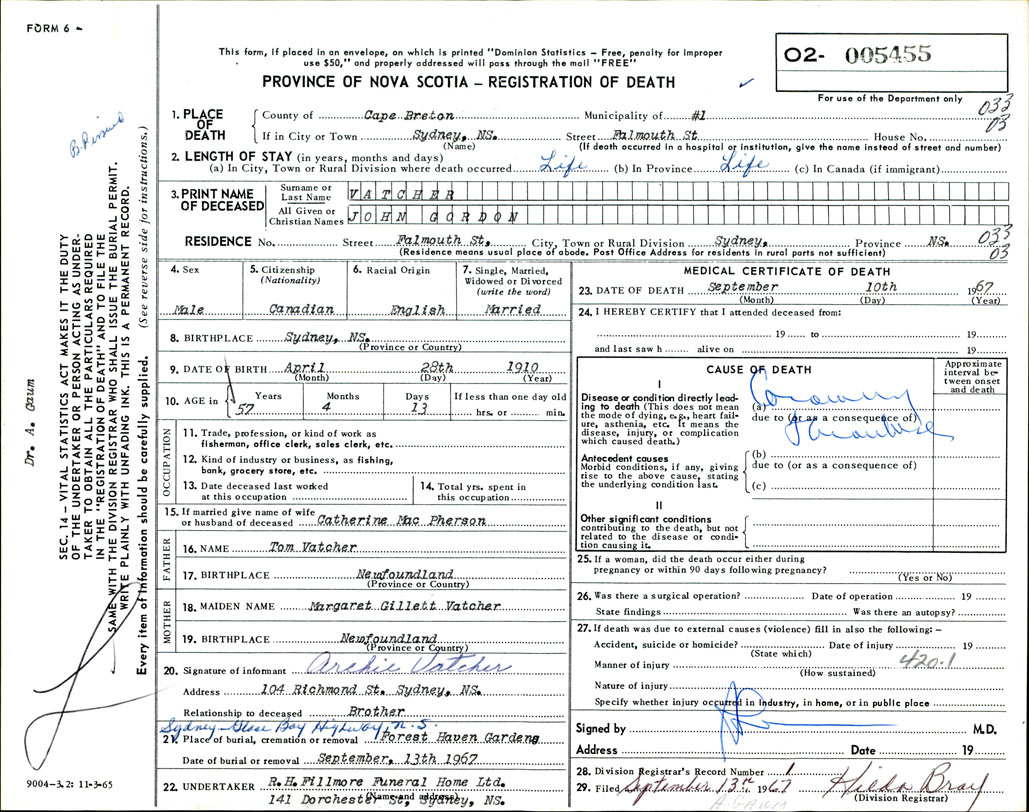 FORM 6 -
This form, if placed in an envelope, on which is printed "Dominion Statistics - Free, penalty for improper
use $50," and properly addressed will pass through the mail "FREE"
PROVINCE OF NOVA SCOTIA - REGISTRATION OF DEATH
02- 005455
For use of the Department only
033
03
1. PLACE OF DEATH
County of Cape Breton Municipality of #1
If in City or Town Sydney, NS. Street Falmouth St House No.
(Name) (If death occurred in a hospital or institution, give the name instead of street and number)
2. LENGTH OF STAY (in years, months and days)
(a) In City, Town or Rural Division where death occurred Life (b) In Province Life (c) In Canada (if immigrant)
3. PRINT NAME OF DECEASED
Surname or Last Name VATCHER
All Given or Christian Names JOHN GORDON
RESIDENCE No. Street Falmouth St, City, Town or Rural Division Sydney, Province NS.
033
03
(Residence means usual place of abode. Post Office Address for residents in rural parts not sufficient)
4. Sex
Male
5. Citizenship
(Nationality)
Canadian
6. Racial Origin
English
7. Single, Married,
Widowed or Divorced
(write the word)
Married
8. BIRTHPLACE Sydney, NS.
(Province or Country)
9. DATE OF BIRTH April 28th 1910
(Month) (Day) (Year)
10. AGE in
Years Months Days If less than one day old
57 4 13 hrs. or min.
OCCUPATION
11. Trade, profession, or kind of work as
fisherman, office clerk, sales clerk, etc.
12. Kind of industry or business, as fishing,
bank, grocery store, etc.
13. Date deceased last worked
at this occupation
14. Total yrs. spent in
this occupation
15. If married give name of wife
or husband of deceased Catherine Mac Pherson
FATHER
16. NAME Tom Vatcher
17. BIRTHPLACE Newfoundland
(Province or Country)
MOTHER
18. MAIDEN NAME Margaret Gillett Vatcher
19. BIRTHPLACE Newfoundland
(Province or Country)
20. Signature of informant Archie Vatcher
Address 104 Richmond St. Sydney, NS.
Relationship to deceased Brother
Sydney-Glace Bay Highway, N.S.
21. Place of burial, cremation or removal Forest Haven Gardens
Date of burial or removal September, 13th 1967
22. UNDERTAKER R.H. Fillmore Funeral Home Ltd.
(Name and address)
141 Dorchester St, Sydney, NS.
MEDICAL CERTIFICATE OF DEATH
23. DATE OF DEATH September 10th 1967
(Month) (Day) (Year)
24. I HEREBY CERTIFY that I attended deceased from:
19 to 19
and last saw h alive on 19
CAUSE OF DEATH
Approximate interval between onset and death
I
Disease or condition directly leading to death (This does not mean
the mode of dying, e.g., heart failure, asthenia, etc. It means the
disease, injury, or complication
which caused death.)
(a) Coronary
due to (or as a consequence of)
Antecedent causes
Morbid conditions, if any, giving
rise to the above cause, stating
the underlying condition last.
(b)
due to (or as a consequence of)
(c)
II
Other significant conditions
contributing to the death, but not
related to the disease or condition causing it.
25. If a woman, did the death occur either during
pregnancy or within 90 days following pregnancy?
(Yes or No)
26. Was there a surgical operation? Date of operation 19
State findings Was there an autopsy?
27. If death was due to external causes (violence) fill in also the following: -
Accident, suicide or homicide? Date of injury 19
(State which)
Manner of injury 420.1
(How sustained)
Nature of injury
Specify whether injury occurred in industry, in home, or in public place
Signed by M.D.
Address Date 19
28. Division Registrar's Record Number 1
29. Filed September 13th 1967 Hilda Bray
(Division Registrar)
A. GAUM
Dr. A. Gaum
SEC. 14 - VITAL STATISTICS ACT MAKES IT THE DUTY
OF THE UNDERTAKER OR PERSON ACTING AS UNDERTAKER TO OBTAIN ALL THE PARTICULARS REQUIRED
IN THE "REGISTRATION OF DEATH" AND TO FILE THE
SAME WITH THE DIVISION REGISTRAR WHO SHALL ISSUE THE BURIAL PERMIT.
WRITE PLAINLY WITH UNFADING INK. THIS IS A PERMANENT RECORD.
Every item of information should be carefully supplied. (See reverse side for instructions.)
9004-3.2: 11-3-65